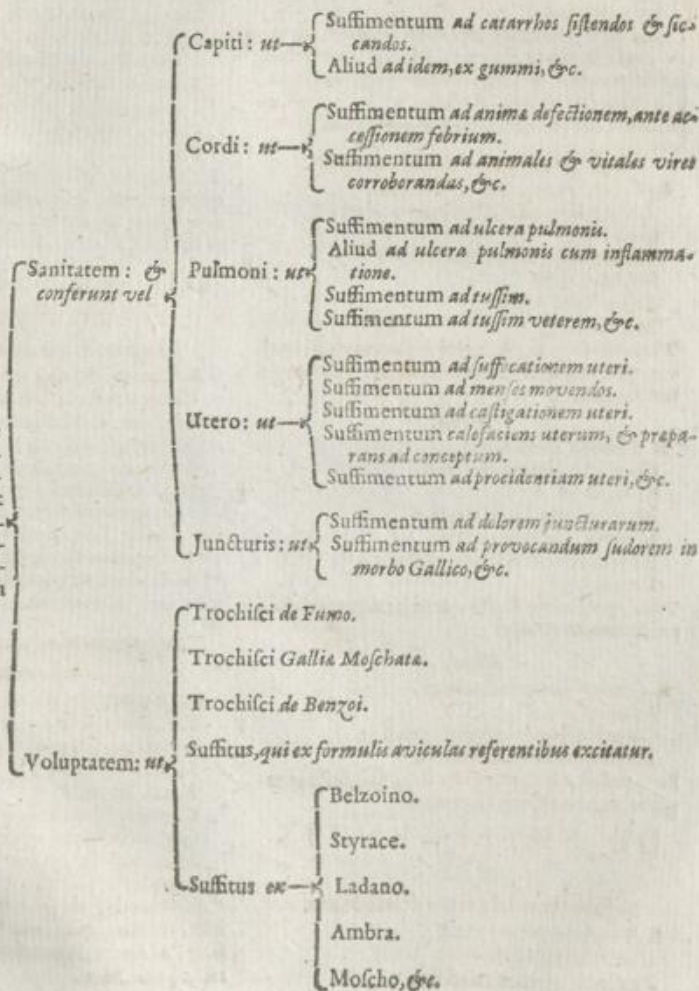 Capiti: ut
Suffimentum ad catarrhos ſiſtendos & ſic-
candos.
Aliud ad idem, ex gummi, &c.
Cordi: ut
Suffimentum ad animæ defectionem, ante ac-
ceſſionem febrium.
Suffimentum ad animales & vitales vires
corroborandas, &c.
Sanitatem: &
conferunt vel
Pulmoni: ut
Suffimentum ad ulcera pulmonis.
Aliud ad ulcera pulmonis cum inflamma-
tione.
Suffimentum ad tuſſim.
Suffimentum ad tuſſim veterem, &c.
Utero: ut
Suffimentum ad ſuffocationem uteri.
Suffimentum ad menſes movendos.
Suffimentum ad caſtigationem uteri.
Suffimentum calefaciens uterum, & præpa-
rans ad conceptum.
Suffimentum ad procidentiam uteri, &c.
Juncturis: ut
Suffimentum ad dolorem juncturarum.
Suffimentum ad provocandum ſudorem in
morbo Gallico, &c.
Voluptatem: ut
Trochiſci de Fumo.
Trochiſci Galliæ Moſchatæ.
Trochiſci de Benzoi.
Suffitus, qui ex formulis aviculas referentibus excitatur.
Suffitus ex
Belzoino.
Styrace.
Ladano.
Ambra.
Moſcho, &c.